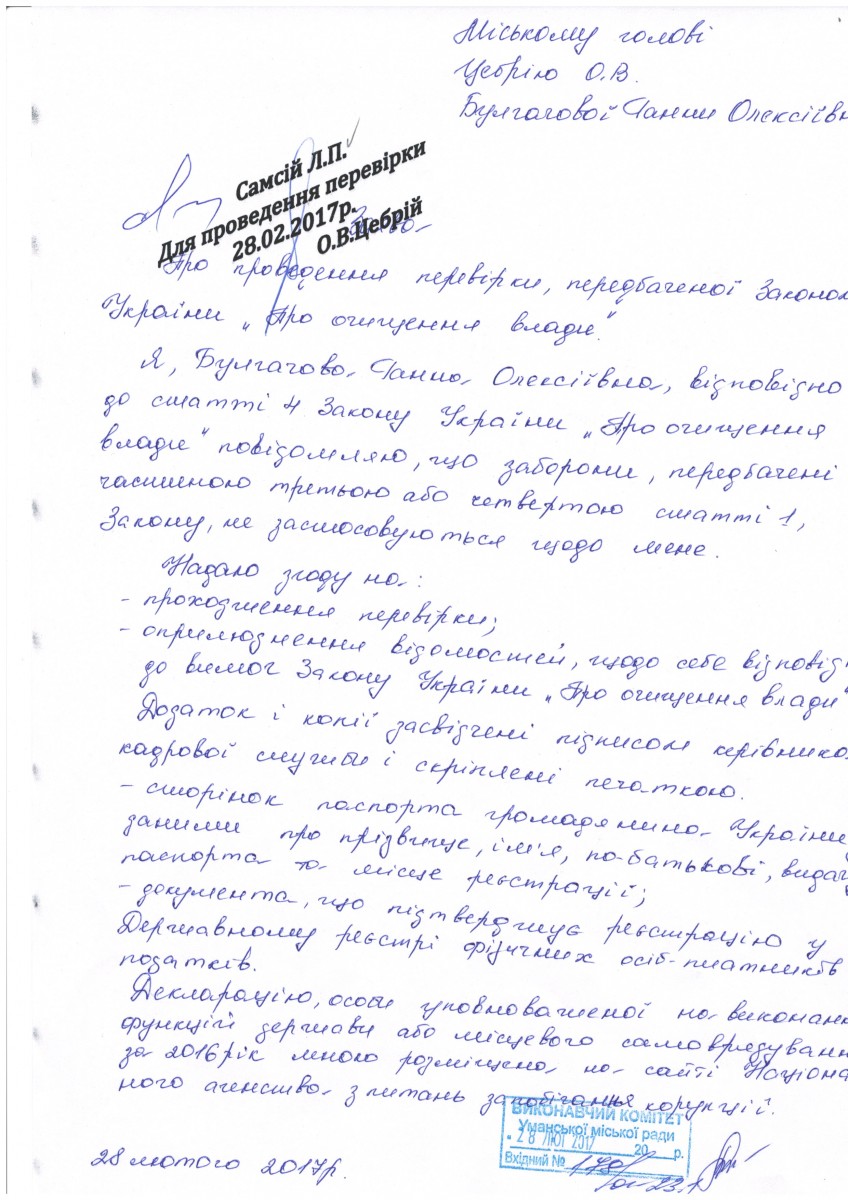 Міському голові
Цебрію О.В.
Булгачової Ганни Олексіївн
Самсій Л.П.
Для проведення перевірки
28.02.2017р.
О.В.Цебрій
Про проведення перевірки, передбаченої Законом
України „Про очищення влади".
Я, Булгачова Ганна Олексіївна, відповідно
до статті 4 Закону України „Про очищення
влади" повідомляю, що заборони, передбачені
частиною третьою або четвертою статті 1,
Закону, не застосовуються щодо мене.
Надаю згоду на:
- проходження перевірки;
- оприлюднення відомостей, щодо себе відповідн
до вимог Закону України „Про очищення влади"
Додаток і копії засвідчені підписом керівника
кадрової служби і скріплені печаткою.
- сторінок паспорта громадянина України
даними про прізвище, ім'я, по-батькові, видач
паспорта та місце реєстрації;
- документа, що підтверджує реєстрацію у
Державному реєстрі фізичних осіб-платників
податків.
Декларацію, особи уповноваженої на виконанн
функцій держави або місцевого самоврядуванн
за 2016рік мною розміщено на сайті Націона
ного агенства з питань запобігання корупції.
ВИКОНАВЧИЙ КОМІТЕТ
Уманської міської ради
28 ЛЮТ 2017 20 р.
Вхідний №
28 лютого 2017р.